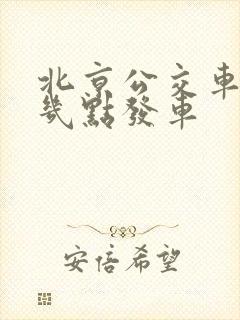 北京公交車
幾點發車
安倍希望